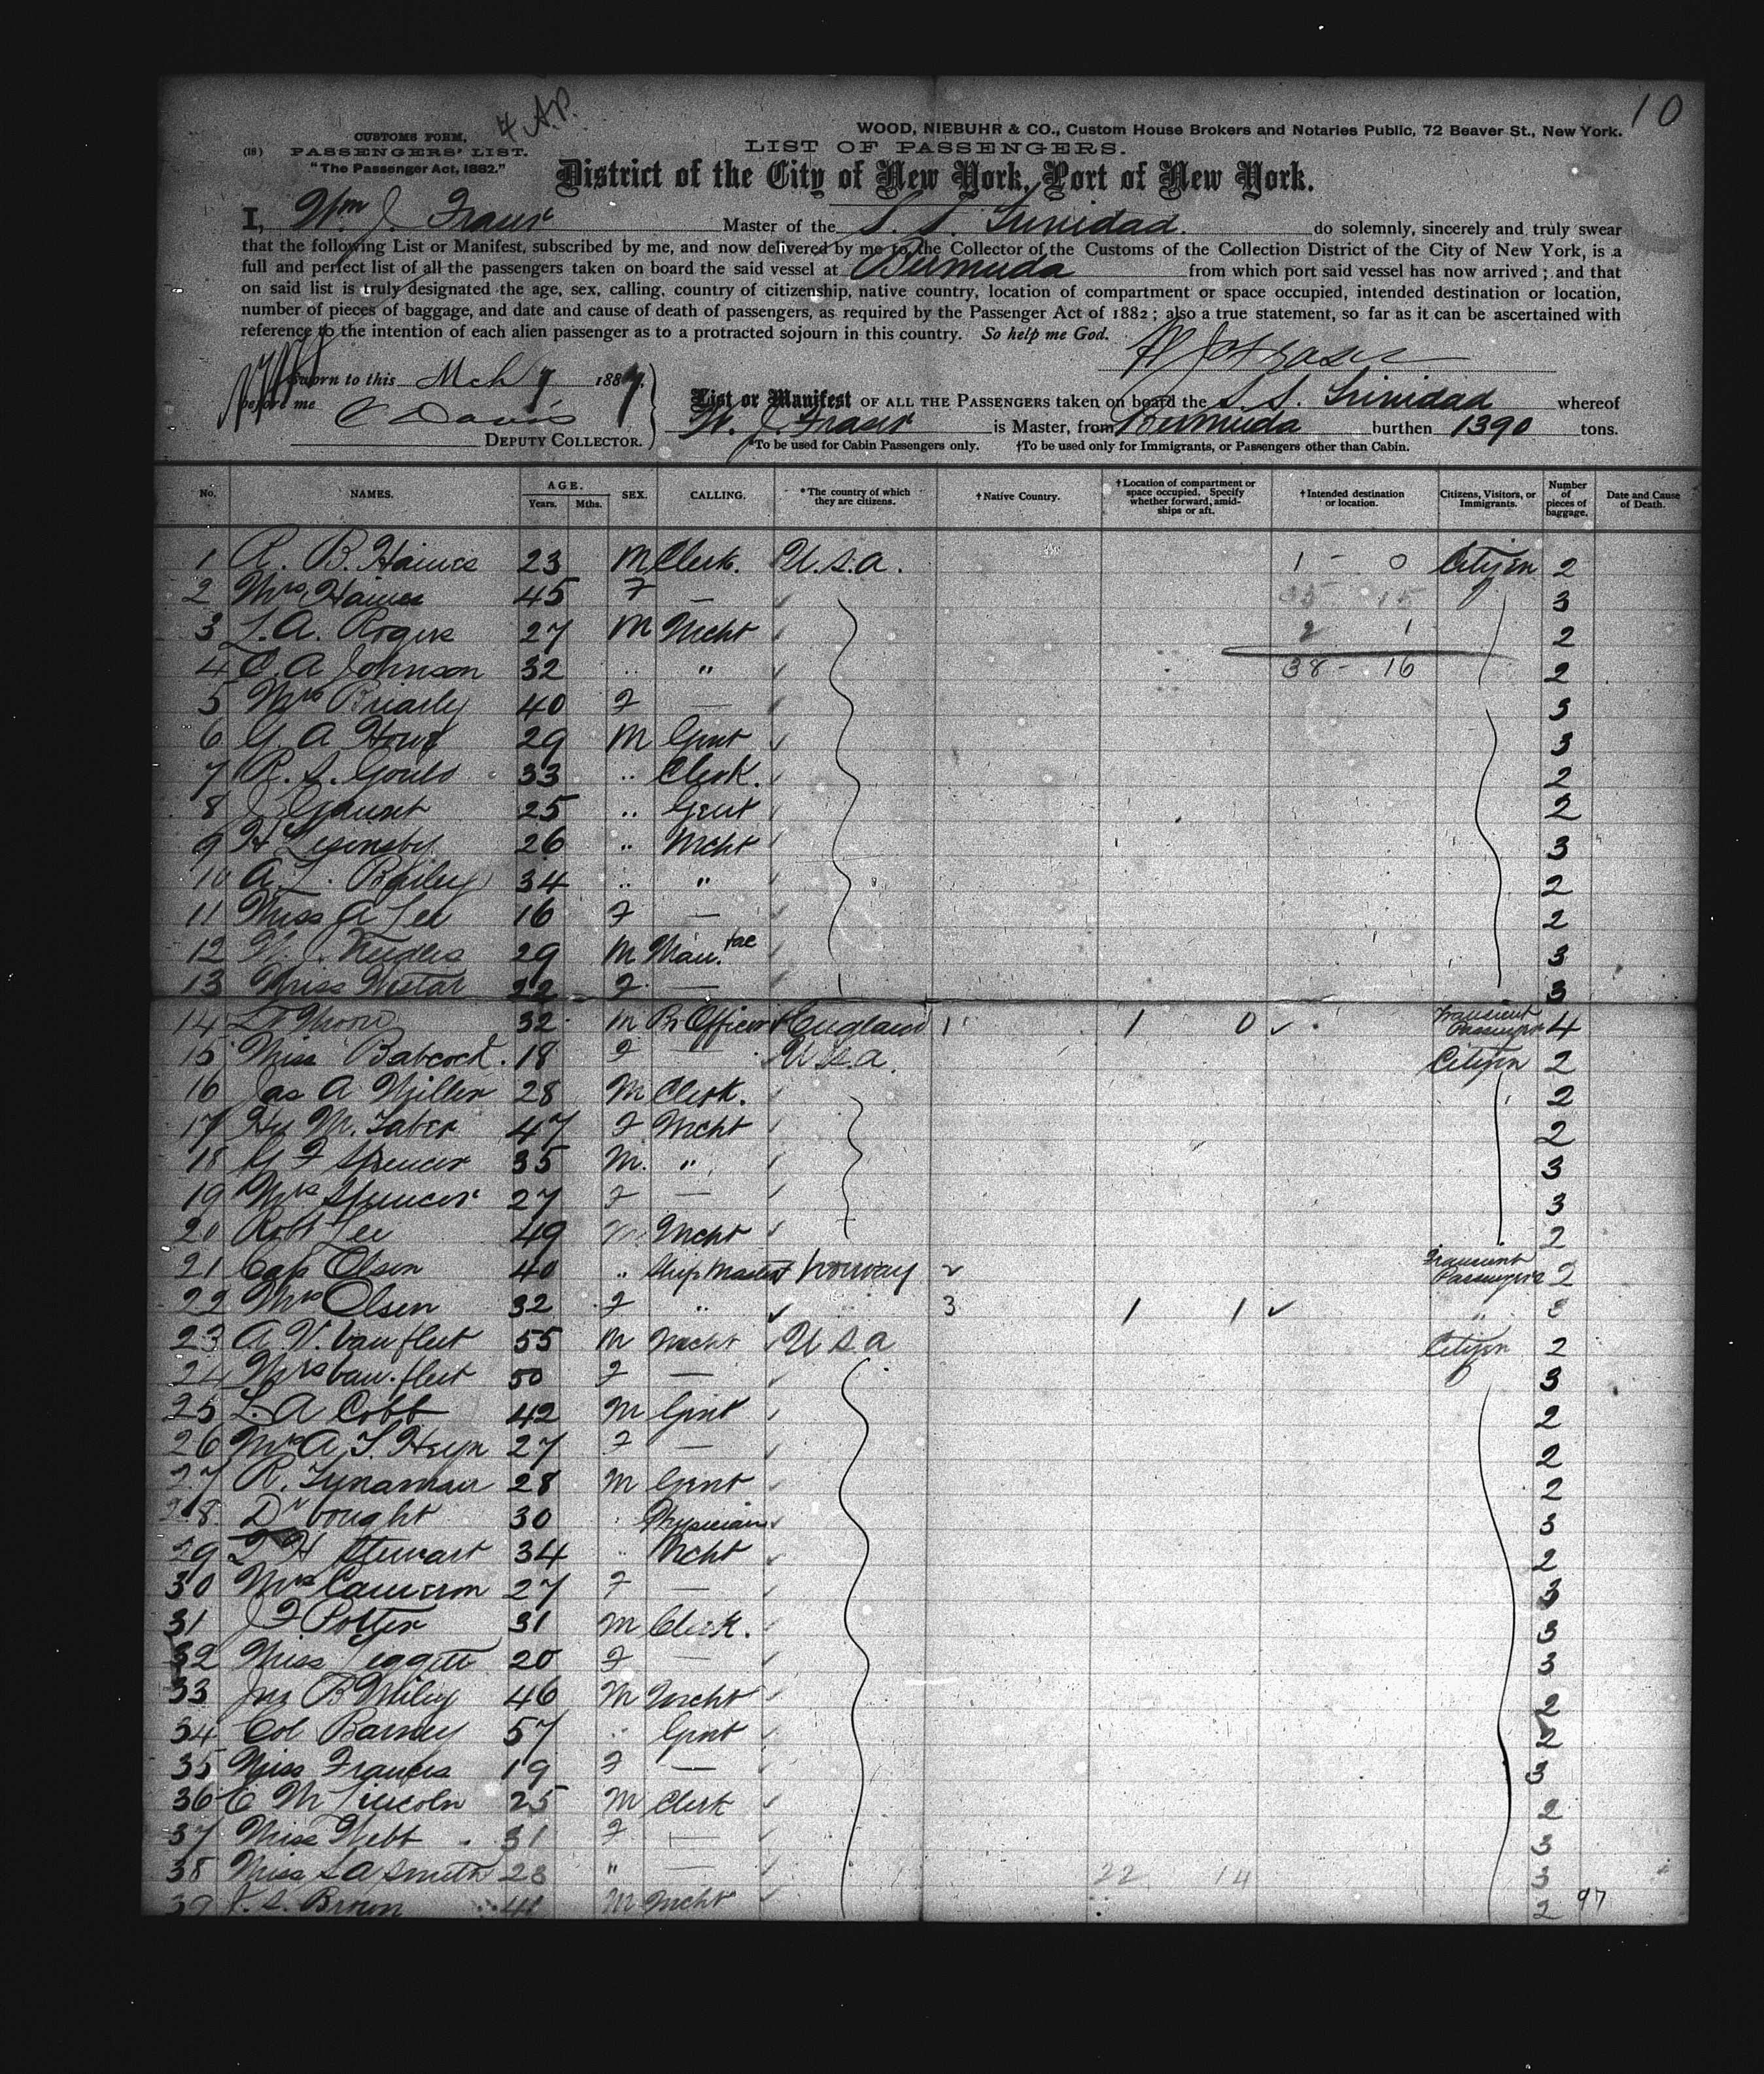 10
4 A.P.
WOOD, NIEBUHR & CO., Custom House Brokers and Notaries Public, 72 Beaver St., New York.
CUSTOMS FORM,
LIST OF PASSENGERS.
(18) PASSENGERS' LIST.
"The Passenger Act, 1882."
District of the City of New York, Port of New York.
I, Wm J. Fraser Master of the S. S. Trinidad. do solemnly, sincerely and truly swear
that the following List or Manifest, subscribed by me, and now delivered by me to the Collector of the Customs of the Collection District of the City of New York, is a
full and perfect list of all the passengers taken on board the said vessel at Bermuda from which port said vessel has now arrived; and that
on said list is truly designated the age, sex, calling, country of citizenship, native country, location of compartment or space occupied, intended destination or location,
number of pieces of baggage, and date and cause of death of passengers, as required by the Passenger Act of 1882; also a true statement, so far as it can be ascertained with
reference to the intention of each alien passenger as to a protracted sojourn in this country. So help me God.
W J Fraser
Sworn to this Mch 7 1887,
before me
C Davis
DEPUTY COLLECTOR.
List or Manifest OF ALL THE PASSENGERS taken on board the S. S. Trinidad whereof
W. J. Fraser is Master, from Bermuda burthen 1390 tons.
*To be used for Cabin Passengers only. †To be used only for Immigrants, or Passengers other than Cabin.
No. NAMES. AGE. Years. Mths. SEX. CALLING. *The country of which they are citizens. †Native Country. †Location of compartment or space occupied. Specify whether forward, amidships or aft. †Intended destination or location. Citizens, Visitors, or Immigrants. Number of pieces of baggage. Date and Cause of Death.
1 R. B. Haines 23 M Clerk. U.S.A. 1 - 0 Citizen 2
2 Mrs Haines 45 F — 35 15 3
3 L. A. Rogers 27 M Mcht 2 1 2
4 C. A Johnson 32 .. " 38 - 16 2
5 Mrs Briarly 40 F — 3
6 G A Howe 29 M Gent 3
7 R. S. Gould 33 .. Clerk. 2
8 J Gaunt 25 .. Gent 2
9 H 26 .. Mcht 3
10 A. L. Bailey 34 .. " 2
11 Miss A Lee 16 F — 2
12 W. J. Needles 29 M Manfac 3
13 Miss Wistar 22 F — 3
14 Lt Moore 32 M Br Officer England 1 1 0 ✓ Transient Passenger 4
15 Miss Babcock. 18 F — U.S.A. Citizen 2
16 Jas A Miller 28 M Clerk. 2
17 Hy M. Taber 47 F Mcht 2
18 G F Spencer 35 M. " 3
19 Mrs Spencer 27 F — 3
20 Robt Lee 49 M Mcht 2
21 Capt Olsen 40 .. Ship Master Norway 2 Transient Passengers 2
22 Mrs Olsen 32 F .. 3 1 1 ✓ " 3
23 A. V. Van fleet 55 M Mcht U S A Citizen 2
24 Mrs Van. fleet 50 F — 3
25 L. A Cobb 42 M Gent 2
26 Mrs A. T. Heyn 27 F — 2
27 R. Tynaman 28 M Gent 2
28 Dr Vought 30 Physician 3
29 T H Stewart 34 .. Mcht 2
30 Mrs Cameron 27 F — 3
31 J F Potter 31 M Clerk. 3
32 Miss Leggett 20 F — 3
33 Jno B Wiley 46 M Mcht 2
34 Col Barney 57 .. Gent 2
35 Miss Francis 19 F — 3
36 C M Lincoln 25 M Clerk 2
37 Miss Webb 31 F — 3
38 Miss S A Smith 28 " — 22 14 3
39 J. S. Brown 41 M Mcht 2 97